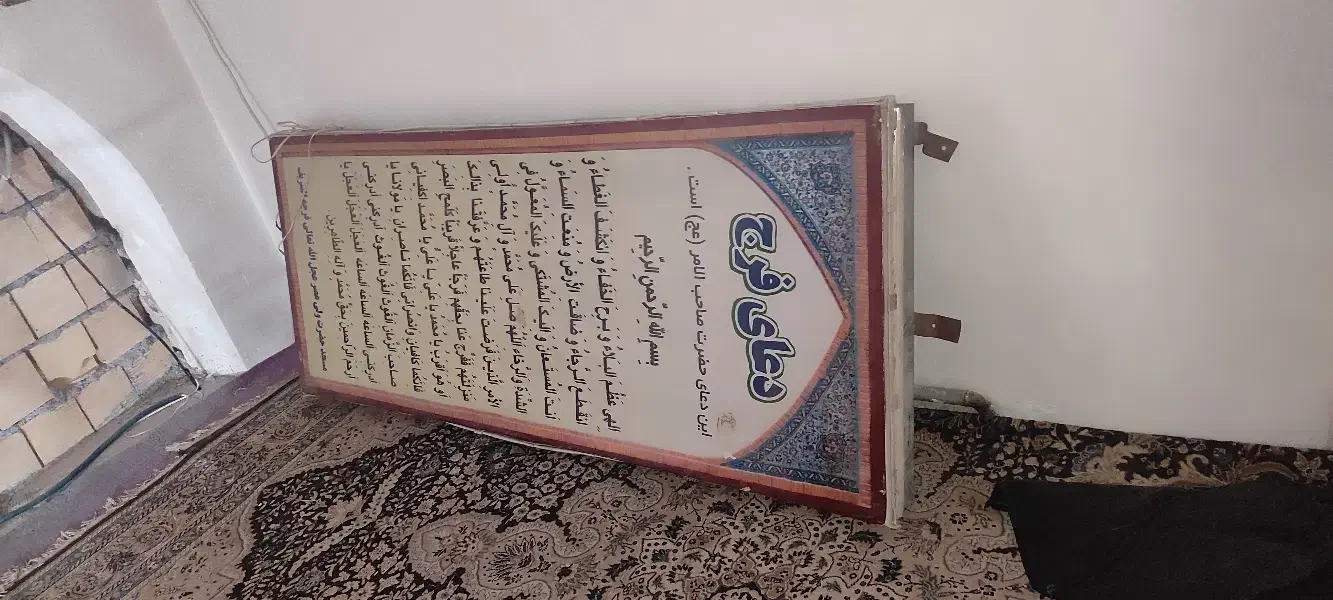 دعای فرج
این دعای حضرت صاحب الامر (عج) است.
بِسمِ اللهِ الرَّحمنِ الرَّحیمِ
اِلهی عَظُمَ البَلاءُ وَ بَرِحَ الخَفاءُ وَ انکَشَفَ الغِطاءُ وَ
انقَطَعَ الرَّجاءُ وَ ضاقَتِ الاَرضُ وَ مُنِعَتِ السَّماءُ وَ
اَنتَ المُستَعانُ وَ اِلَیکَ المُشتَکی وَ عَلَیکَ المُعَوَّلُ فِی
الشِّدَّةِ وَ الرَّخاءِ اَللّهُمَّ صَلِّ عَلی مُحَمَّدٍ وَ آلِ مُحَمَّدٍ اُولِی
الاَمرِ الَّذینَ فَرَضتَ عَلَینا طاعَتَهُم وَ عَرَّفتَنا بِذالِکَ
مَنزِلَتَهُم فَفَرِّج عَنّا بِحَقِّهِم فَرَجاً عاجِلاً قَریباً کَلَمحِ البَصَرِ
اَو هُوَ اَقرَبُ یا مُحَمَّدُ یا عَلِیُّ یا عَلِیُّ یا مُحَمَّدُ اِکفِیانی
فَاِنَّکُما کافِیانِ وَانصُرانی فَاِنَّکُما ناصِرانِ یا مَولانا یا
صاحِبَ الزَّمانِ الغَوثَ الغَوثَ الغَوثَ اَدرِکنی اَدرِکنی
اَدرِکنی السّاعَة السّاعَة السّاعَة العَجَلَ العَجَلَ العَجَلَ یا
اَرحَمَ الرّاحِمینَ بِحَقِّ مُحَمَّدٍ وَ آلِهِ الطّاهِرینَ
مسجد حضرت ولی عصر عجل الله تعالی فرجه الشریف